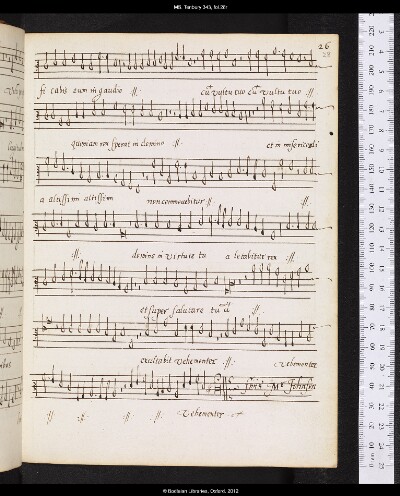 MS. Tenbury 343, fol.26r
26
fi cabis eum in gaudio :||: cū vultu tuo cū vultu tuo :||:
quoniam rex sperat in domino :||: et in misericordi
a altissimi altissimi non commovebitur :||: :||:
:||: domine in virtute tu a letabitur rex :||:
et super salutare tu ū :||:
exultabit vehementer :||: vehementer
:||: :||: :||: :||: Vehementer
finis Mr Johnson
© Bodleian Libraries, Oxford, 2012